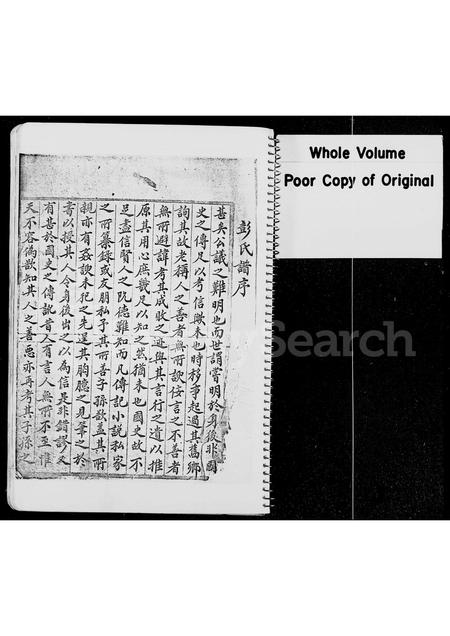 彭氏譜序
甚矣公議之難明也而世謂嘗明於身後非國
史之傳足以考信歟未也時移事起過其舊鄉
詢其故老稱人之善者無所諛佞言之不善者
無所避諱考其成敗之迹與其言行之遺以推
原其用心庶幾足以知之然猶未也國史故不
足盡信賢人之阨德難知而凡傳記小說私家
之所纂錄或友朋私予其所善子孫欲蓋其所
親亦有姦諛未犯之先逞其胸臆之見筆之於
書以授其人令身後出之以為信是非錯謬又
有甚於國史之傳訛昔人有言人無所不至惟
天不容偽欲知其人之善惡亦再考其子孫之
Whole Volume
Poor Copy of Original
Search